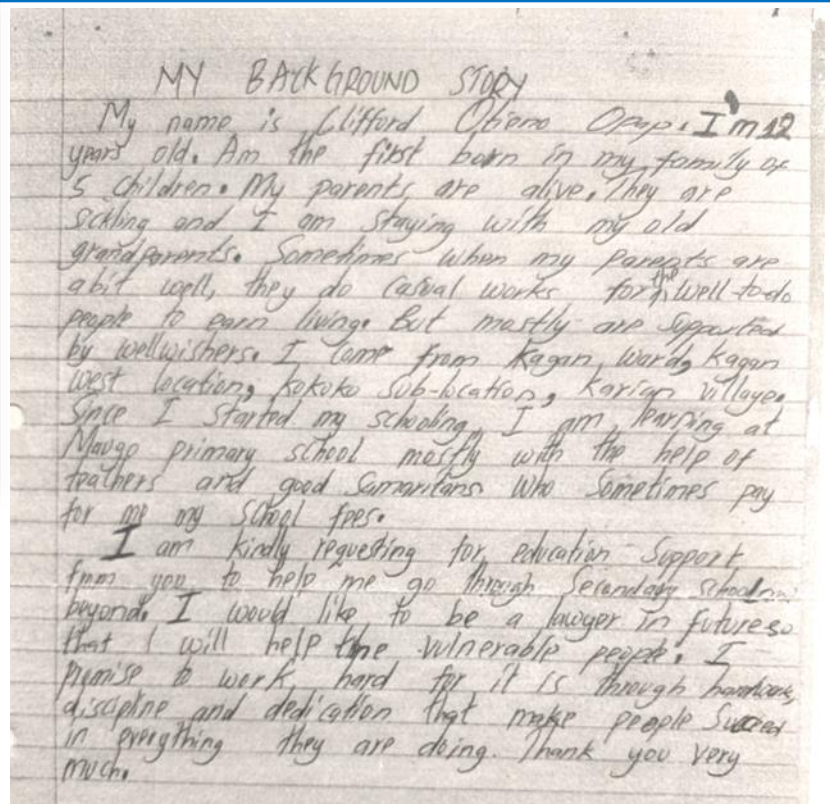 MY BACKGROUND STORY
My name is Clifford Otieno Opap. I'm 12
years old. Am the first born in my family of
5 children. My parents are alive. They are
sickling and I am staying with my old
grandparents. Sometimes when my parents are
abit well, they do casual works for the well-to-do
people to earn living. But mostly are supported
by wellwishers. I come from Kagan, ward, Kagan
west location, Kokoko sub-location, Karian village.
Since I started my schooling, I am learning at
Maugo primary school mostly with the help of
teachers and good Samaritans who sometimes pay
for me my school fees.
I am kindly requesting for education support
from you to help me go through Secondary School
beyond. I would like to be a lawyer in future so
that I will help the vulnerable people. I
promise to work hard for it is through hardwork,
discipline and dedication that make people succeed
in everything they are doing. Thank you very
much.